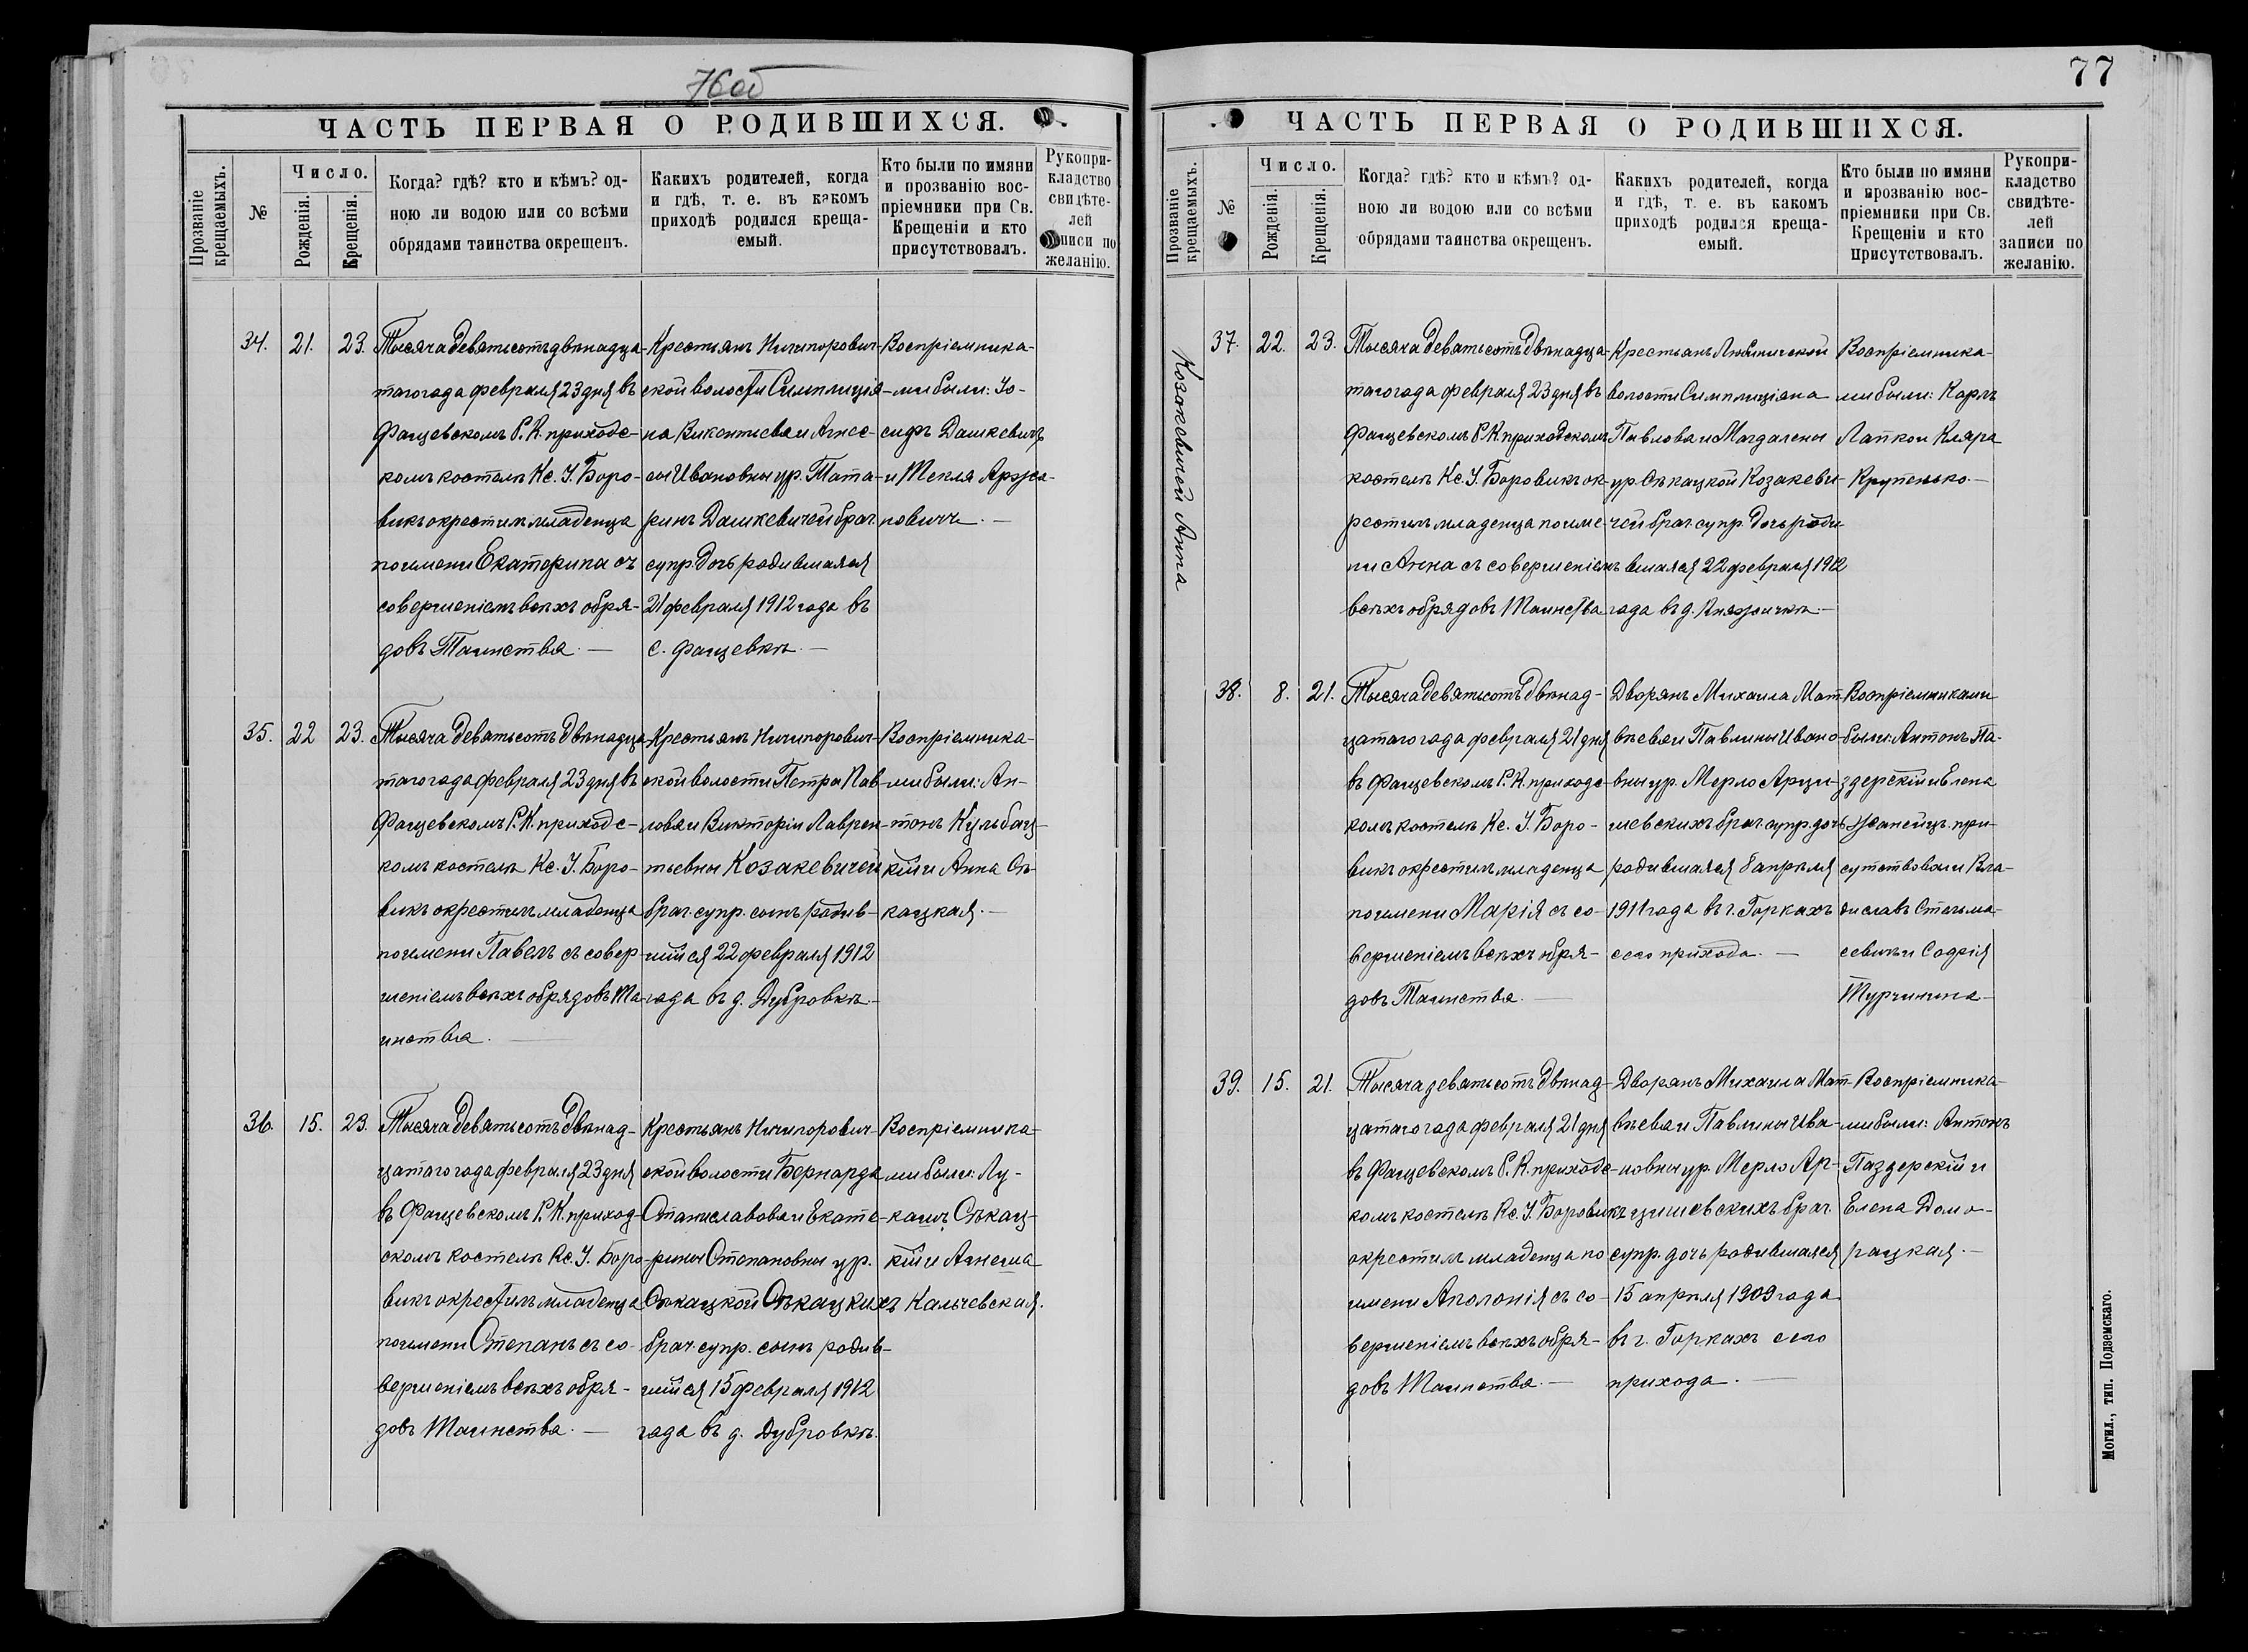 76об
ЧАСТЬ ПЕРВАЯ О РОДИВШИХСЯ.
Прозваніе крещаемыхъ.
№
Число.
Рожденія.
Крещенія.
Когда? гдѣ? кто и кѣмъ? од-
ною ли водою или со всѣми
обрядами таинства окрещенъ.
Какихъ родителей, когда
и гдѣ, т. е. въ какомъ
приходѣ родился креща-
емый.
Кто были по имяни
и прозванію вос-
пріемники при Св.
Крещеніи и кто
присутствовалъ.
Рукопри-
кладство
свидѣте-
лей
записи по
желанію.
34.
21.
23.
Тысяча девятьсотъ двѣнадца-
таго года февраля 23 дня въ
Фащевскомъ Р. К. приходс-
комъ костелѣ Кс. І. Боро-
викъ окрестилъ младенца
по имени Екатерина съ
совершеніемъ всѣхъ обря-
довъ Таинства. —
Крестьянъ Ничипорович-
ской волости Симплиція-
на Викентіева и Агнес-
сы Ивановны ур. Тата-
ринъ Дашкевичей брач.
супр. дочь родившаяся
21 февраля 1912 года въ
с. Фащевкѣ. —
Воспріемника-
ми были: Іо-
сифъ Дашкевичъ
и Текля Аржа-
новичъ. —
35.
22
23.
Тысяча девятьсотъ двѣнадца-
таго года февраля 23 дня въ
Фащевскомъ Р. К. приходс-
комъ костелѣ Кс. І. Боро-
викъ окрестилъ младенца
по имени Павелъ съ совер-
шеніемъ всѣхъ обрядовъ Та-
инства. —
Крестьянъ Ничипорович-
ской волости Петра Пав-
лова и Викторіи Лаврен-
тьевны Козакевичей
брач. супр. сынъ родив-
шійся 22 февраля 1912
года въ д. Дубровкѣ. —
Воспріемника-
ми были: Ан-
тонъ Кульбац-
кій и Анна Сѣ-
кацкая. —
36.
15.
23.
Тысяча девятьсотъ двѣнад-
цатаго года февраля 23 дня
въ Фащевскомъ Р. К. приход-
скомъ костелѣ Кс. І. Боро-
викъ окрестилъ младенца
по имени Степанъ съ со-
вершеніемъ всѣхъ обря-
довъ Таинства. —
Крестьянъ Ничипорович-
ской волости Бернарда
Станиславова и Екате-
рины Степановны ур.
Сѣкацкой Сѣкацкихъ
брач. супр. сынъ родив-
шійся 15 февраля 1912
года въ д. Дубровкѣ.
Воспріемника-
ми были: Лу-
кашъ Сѣкац-
кій и Агнеша
Кальчевская.
77
ЧАСТЬ ПЕРВАЯ О РОДИВШИХСЯ.
Прозваніе крещаемыхъ.
№
Число.
Рожденія.
Крещенія.
Когда? гдѣ? кто и кѣмъ? од-
ною ли водою или со всѣми
обрядами таинства окрещенъ.
Какихъ родителей, когда
и гдѣ, т. е. въ какомъ
приходѣ родился креща-
емый.
Кто были по имяни
и прозванію вос-
пріемники при Св.
Крещеніи и кто
присутствовалъ.
Рукопри-
кладство
свидѣте-
лей
записи по
желанію.
Козакевичей Анна
37.
22.
23.
Тысяча девятьсотъ двѣнадца-
таго года февраля 23 дня въ
Фащевскомъ Р. К. приходскомъ
костелѣ Кс. І. Боровикъ ок-
рестилъ младенца по име-
ни Анна съ совершеніемъ
всѣхъ обрядовъ Таинства
Крестьянъ Любиничской
волости Симплиціана
Павлова и Магдалены
ур. Сѣкацкой Козакеви-
чей брач. супр. дочь роди-
вшаяся 22 февраля 1912
года въ д. Княжичкѣ. —
Воспріемника-
ми были: Карлъ
Лапко и Клара
Крупенько. —
38.
8.
21.
Тысяча девятьсотъ двѣнад-
цатаго года февраля 21 дня
въ Фащевскомъ Р. К. приходс-
комъ костелѣ Кс. І. Боро-
викъ окрестилъ младенца
по имени Марія съ со-
вершеніемъ всѣхъ обря-
довъ Таинства. —
Дворянъ Михаила Мат-
вѣева и Павлины Ивано-
вны ур. Мерло Арци-
шевскихъ брач. супр. дочь
родившаяся 8 апрѣля
1911 года въ г. Горкахъ
сего прихода. —
Воспріемниками
были: Антонъ Па-
здерскій и Елена
Жанеицъ при-
сутствовали Вла-
диславъ Стельма-
севичъ и Софія
Турчинина —
39.
15.
21.
Тысяча девятьсотъ двѣнад-
цатаго года февраля 21 дня
въ Фащевскомъ Р. К. приходс-
комъ костелѣ Кс. І. Боровикъ
окрестилъ младенца по
имени Аполонія съ со-
вершеніемъ всѣхъ обря-
довъ Таинства. —
Дворянъ Михаила Мат-
вѣева и Павлины Ива-
новны ур. Мерло Ар-
цишевскихъ брач.
супр. дочь родившаяся
15 апрѣля 1909 года
въ г. Горкахъ сего
прихода. —
Воспріемника-
ми были: Антонъ
Паздерскій и
Елена Домо-
рацкая. —
Могил., тип. Подземскаго.